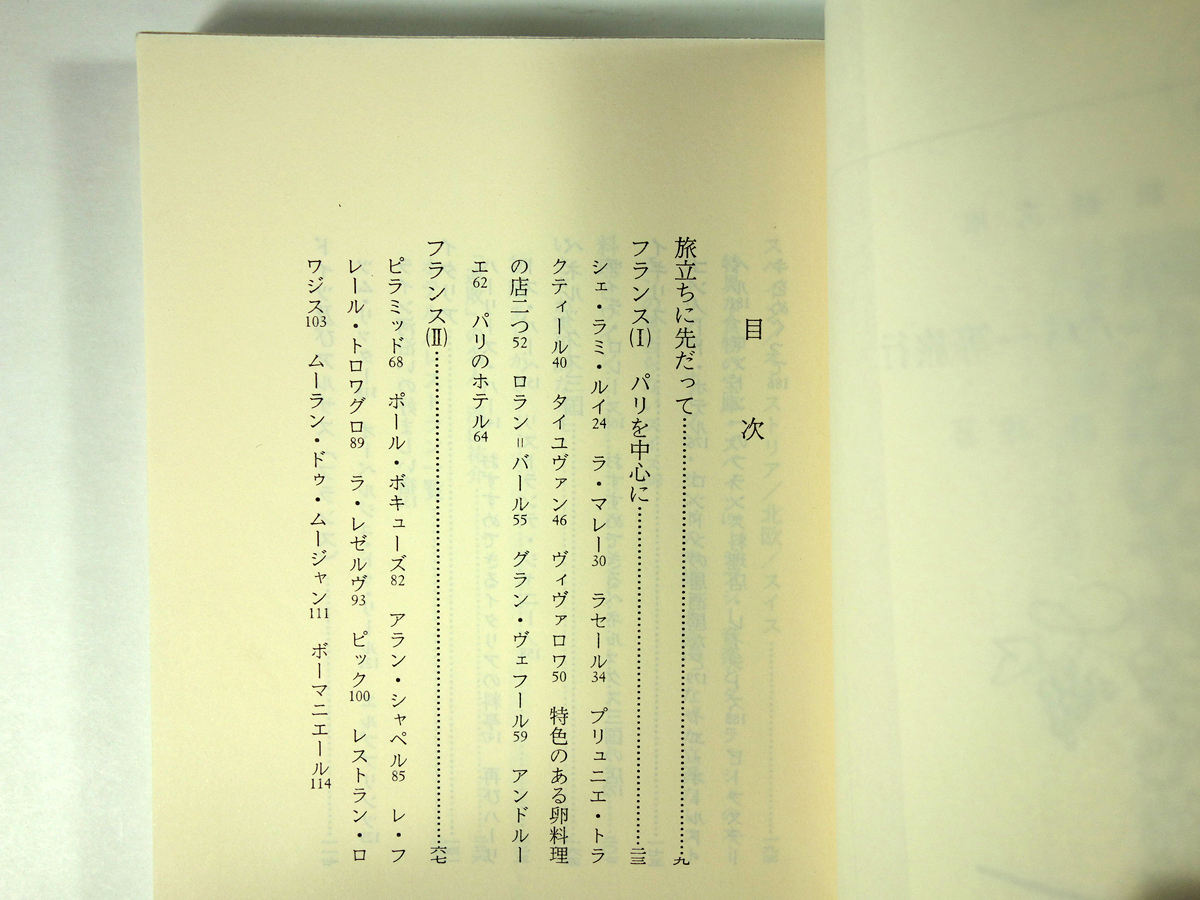 目次
旅立ちに先だって……九
フランス(Ⅰ)　パリを中心に……二三
シェ・ラミ・ルイ24　ラ・マレー30　ラセール34　プリュニエ・トラ
クティール40　タイユヴァン46　ヴィヴァロワ50　特色のある卵料理
の店二つ52　ロラン=バール55　グラン・ヴェフール59　アンドルー
エ62　パリのホテル64
フランス(Ⅱ)……六七
ピラミッド68　ポール・ボキューズ82　アラン・シャペル85　レ・フ
レール・トロワグロ89　ラ・レゼルヴ93　ピック100　レストラン・ロ
ワジス103　ムーラン・ドゥ・ムージャン111　ボーマニエール114